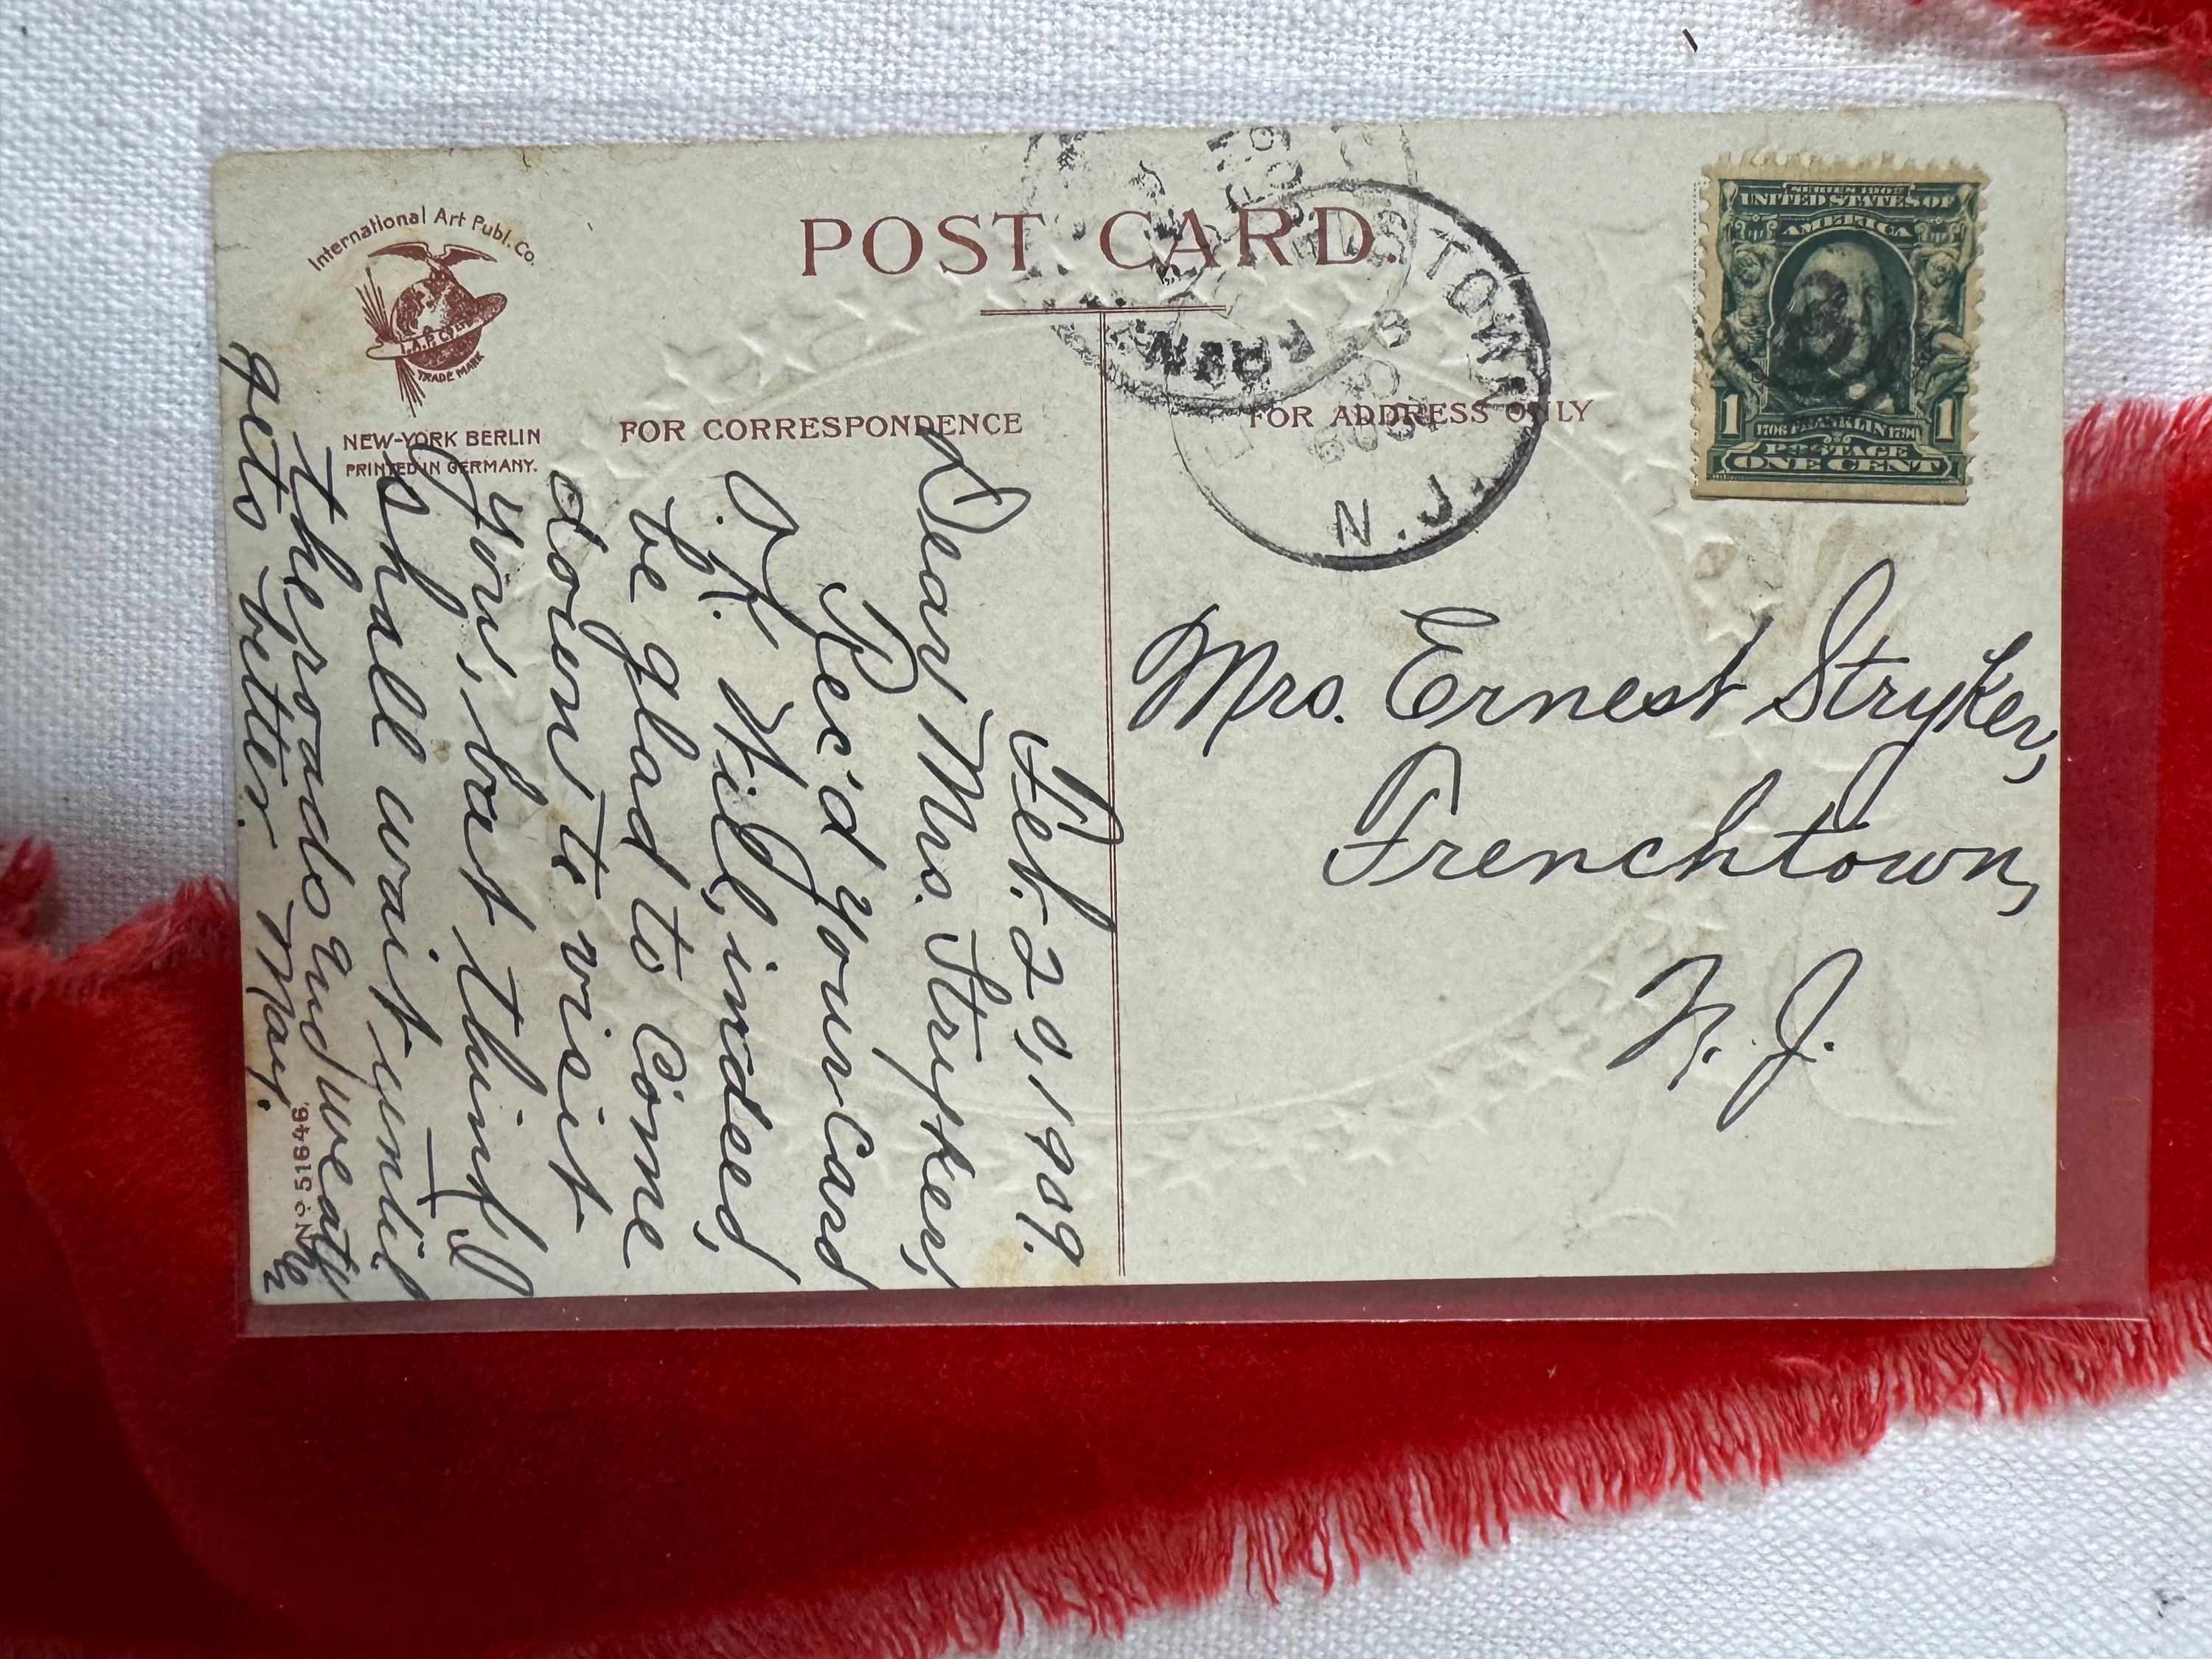 International Art Publ. Co.
I.A.P. Co.
TRADE MARK
NEW-YORK BERLIN
PRINTED IN GERMANY.
POST CARD.
FOR CORRESPONDENCE
FOR ADDRESS ONLY
STOWN
FEB
N.J.
SERIES 1902
UNITED STATES OF
AMERICA
1 1
1706 FRANKLIN 1790
POSTAGE
ONE CENT
Feb. 20, 1909.
Dear Mrs. Stryker,
Rec'd your Card
O.K. Will, indeed,
be glad to Come
down to visit
you, but think I
shall wait until
the roads and weather
gets better. May.
Mrs. Ernest Stryker,
Frenchtown,
N. J.
No. 51646.